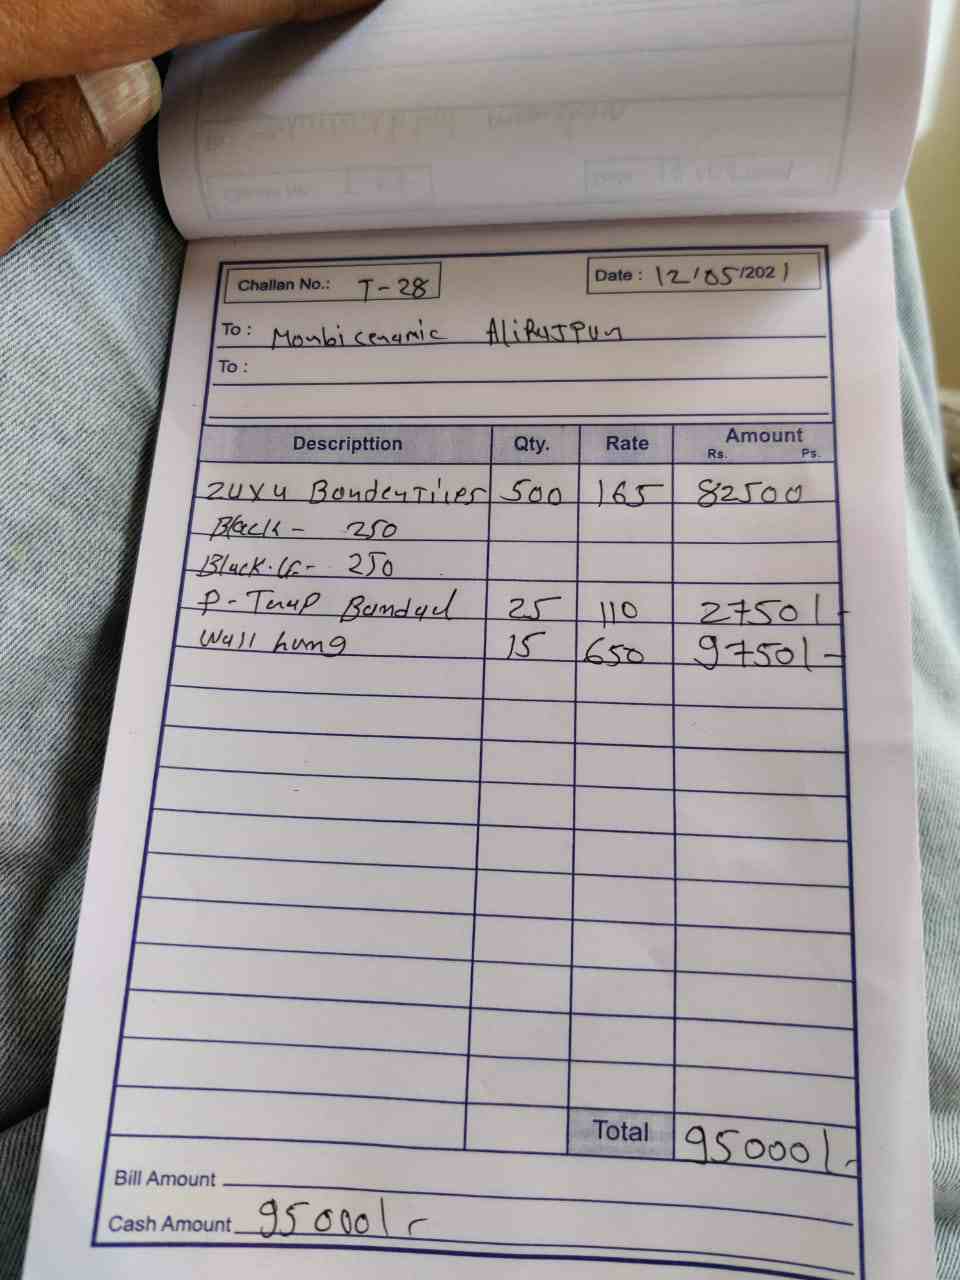 Challan No.: T-28
Date : 12/05/2021
To : Morbi ceramic Alirajpur
To :
Descripttion Qty. Rate Amount
Rs. Ps.
24x4 Border Tiles 500 165 82500
Black - 250
Black. - 250
P-Trap 25 110 2750/-
Wall hung 15 650 9750/-
Total 95000/-
Bill Amount
Cash Amount 95000/-